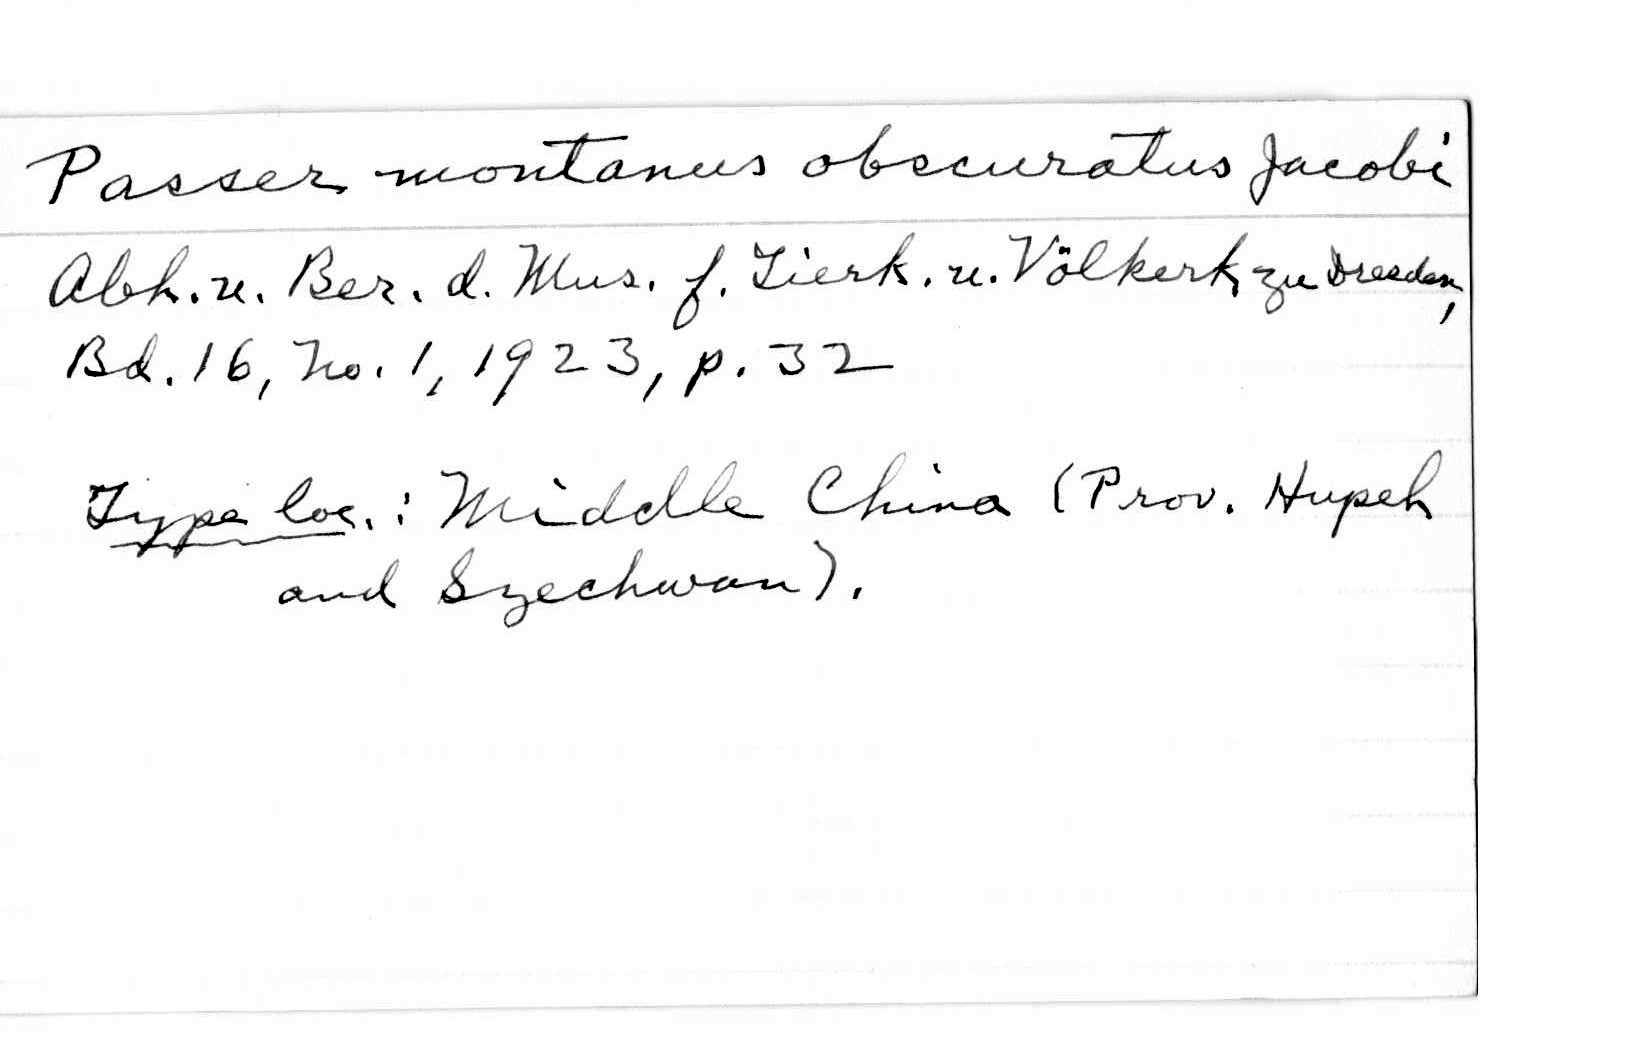 Passer montanus obscuratus Jacobi
Abh. u. Ber. d. Mus. f. Tierk. u. Völkerk. zu Dresden,
Bd. 16, No. 1, 1923, p. 32
Type loc.: Middle China (Prov. Hupeh
and Szechwan).